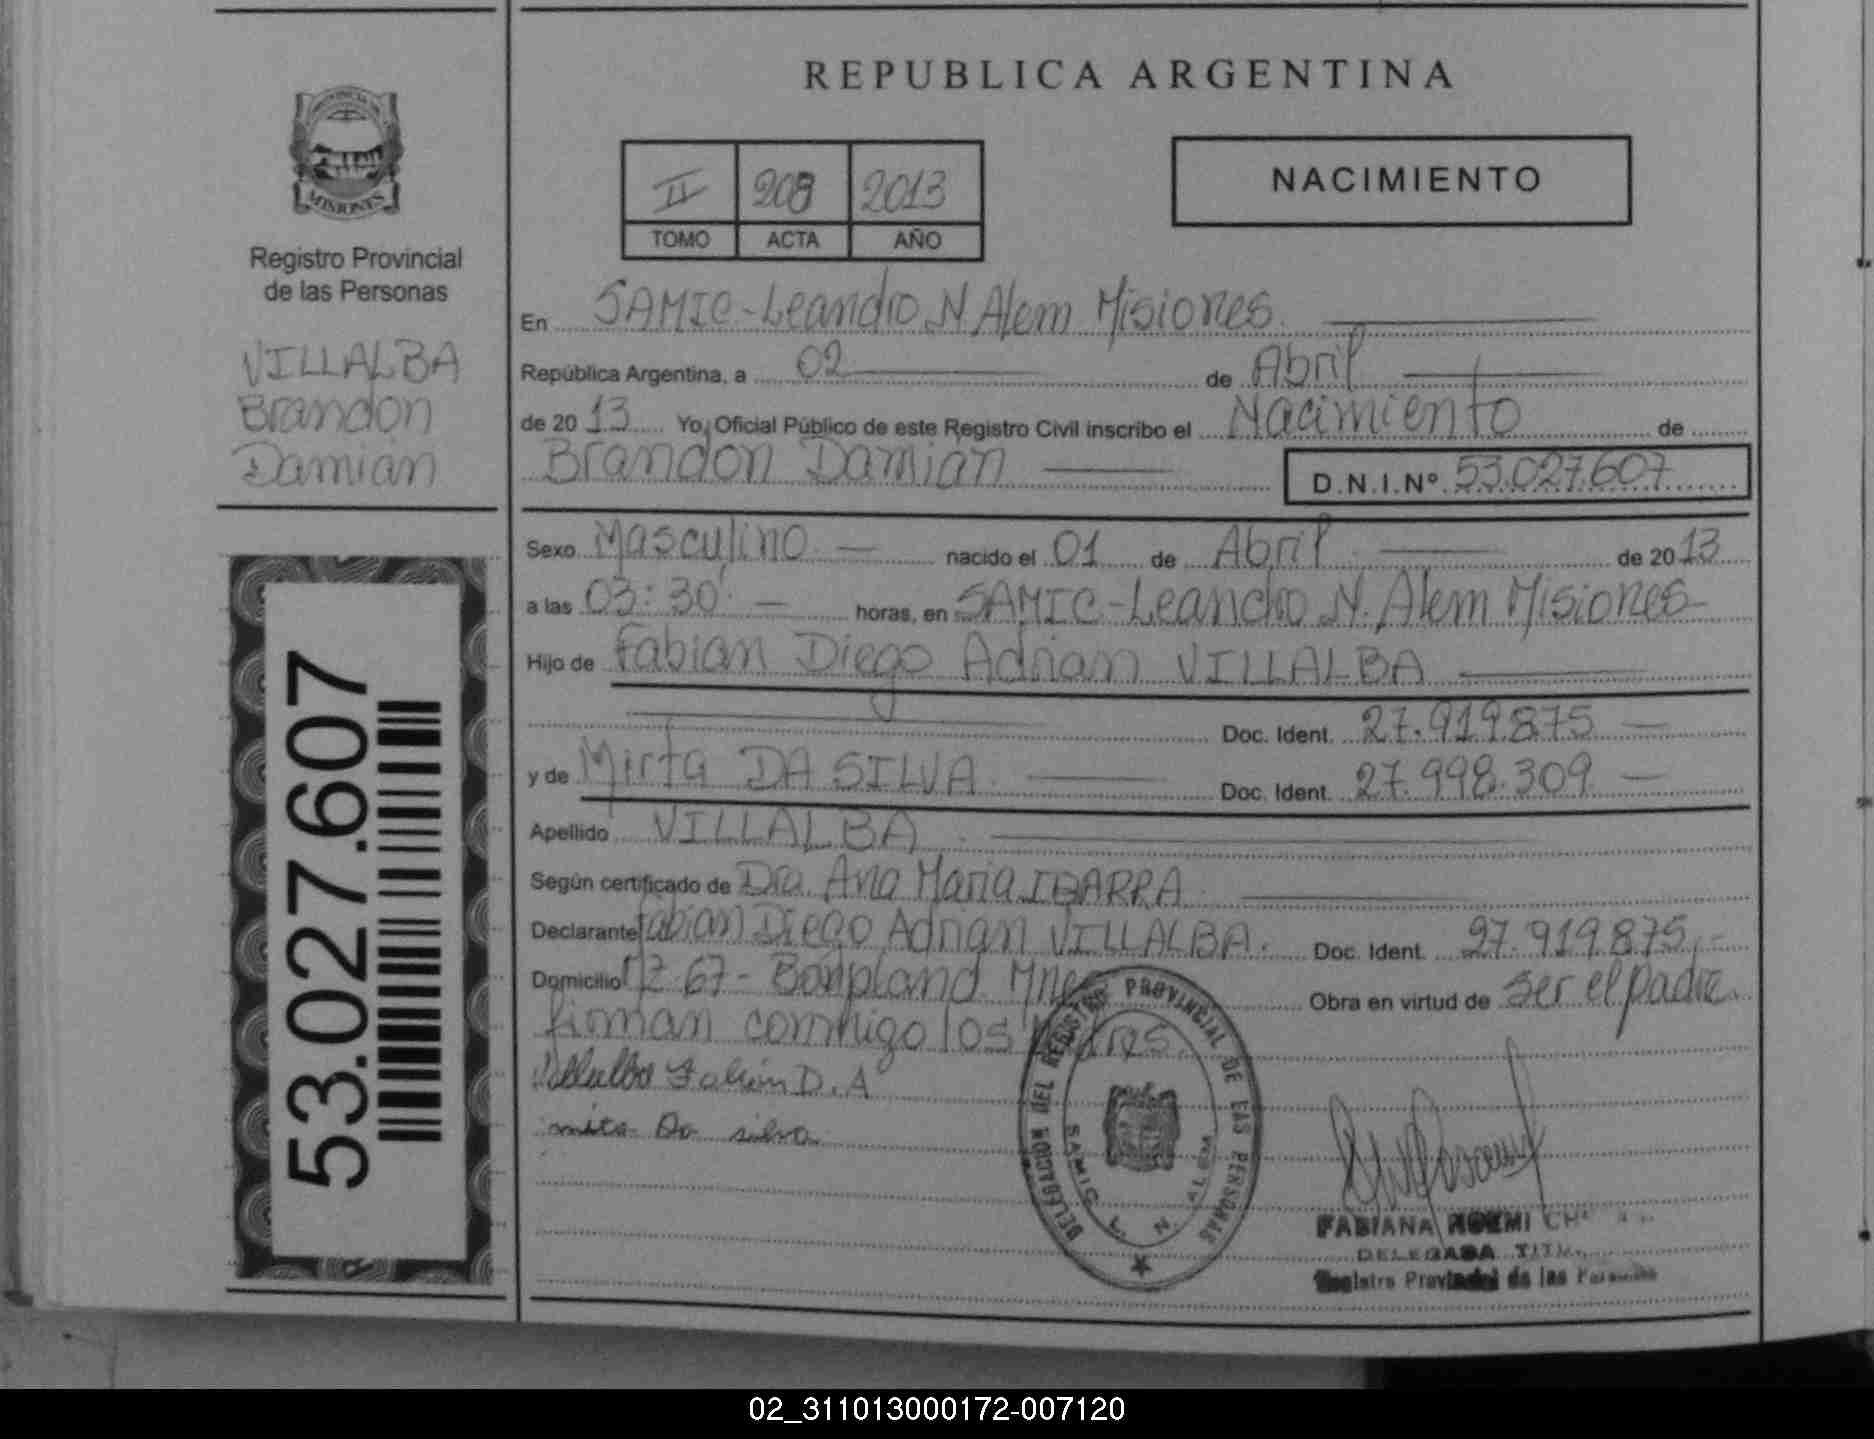 REPUBLICA ARGENTINA
PROVINCIA DE
MISIONES
Registro Provincial
de las Personas
VILLALBA
Brandon
Damián
53.027.607
II 208 2013
TOMO ACTA AÑO
NACIMIENTO
En SAMIC-Leandro N Alem Misiones.
República Argentina, a 02 de Abril
de 2013 Yo, Oficial Público de este Registro Civil inscribo el Nacimiento de
Brandon Damián D.N.I.Nº 53.027.607
Sexo Masculino nacido el 01 de Abril de 2013
a las 03:30' horas, en SAMIC-Leandro N. Alem Misiones
Hijo de Fabian Diego Adrian VILLALBA
Doc. Ident. 27.919.875
y de Mirta DA SILVA Doc. Ident. 27.998.309
Apellido VILLALBA
Según certificado de Dra. Ana Maria IBARRA
Declarante Fabian Diego Adrian VILLALBA. Doc. Ident. 27.919.875
Domicilio MZ 67- Bonpland Mnes Obra en virtud de ser el padre.
firman conmigo los
Villalba Fabian D. A
Da silva
DELEGACION DEL REGISTRO PROVINCIAL DE LAS PERSONAS
SAMIC L. N. ALEM
FABIANA NOEMI
DELEGADA
Registro Provincial de las Personas
02_311013000172-007120